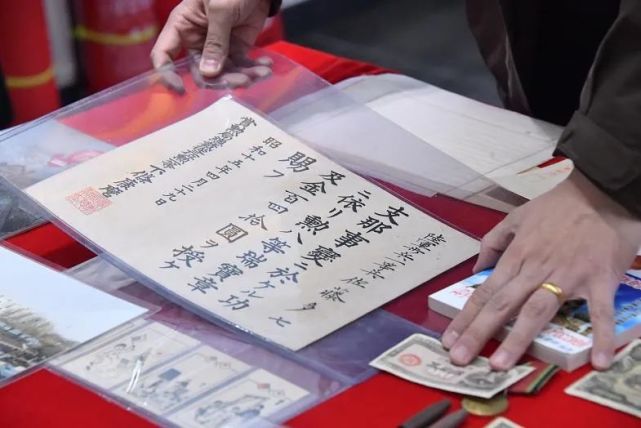 陸軍歩兵 佐藤多七
支那事變ニ於ケル功
ニ依リ勲八等瑞寶章
及金百四拾圓ヲ授ケ
賜フ
昭和十五年四月二十九日
賞勲局總裁 下條康麿